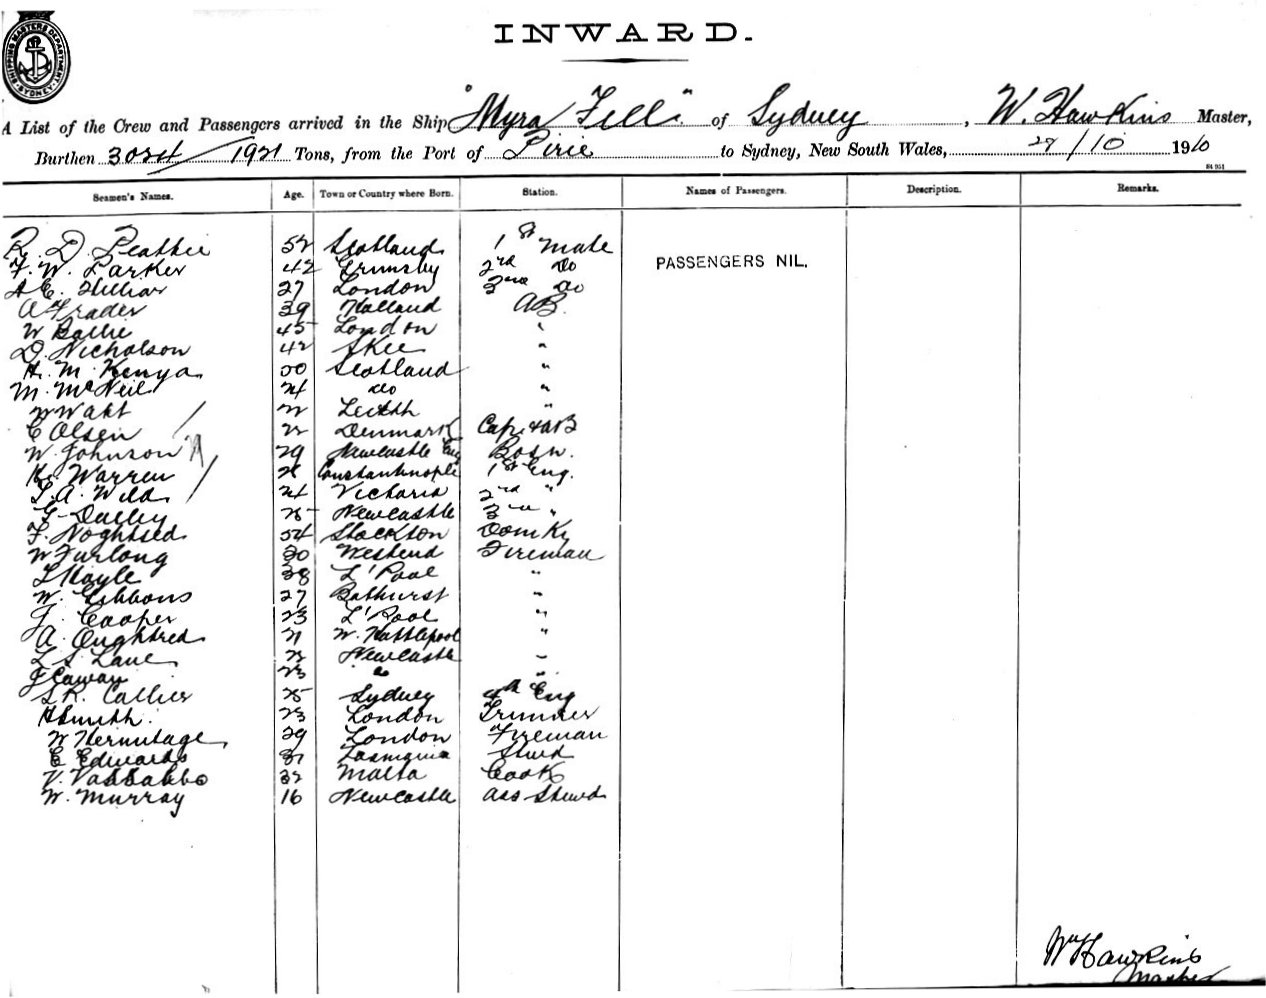 SHIPPING MASTERS DEPARTMENT SYDNEY
INWARD.
A List of the Crew and Passengers arrived in the Ship "Myra Fell" of Sydney, W. Hawkins Master,
Burthen 3034/1921 Tons, from the Port of Pirie to Sydney, New South Wales, 27/10 1910
84 951
Seamen's Names. Age. Town or Country where Born. Station. Names of Passengers. Description. Remarks.
R. D. 52 Scotland 1st Mate
F. W. Parker 42 Grimsby 2nd Do
27 London 3rd Do
39 Holland AB.
W 45 London "
D. Nicholson 42 "
50 Scotland "
M. McNeil 24 do "
W Watt 22 Leith "
C Olsen 22 Denmark AB
W. Johnson 29 Newcastle Eng Bosn.
Warren Constantinople 1st Eng.
Wild 24 Victoria 2nd "
25 Newcastle 3rd "
F. 54 Stockton Donky
W Furlong 30 Fireman
38 L'Pool "
W. Gibbons 27 Bathurst "
J. Cooper 23 L'Pool "
A. Oughtred 21 W. Hartlepool "
L S. Lane Newcastle "
23 " "
25 Sydney 4th Eng
H Smith. 23 London Trimmer
W Hermitage 29 London Fireman
E Edwards Tasmania Stwd
V. 32 Malta Cook
W. Murray 16 Newcastle Ass Stewd
PASSENGERS NIL.
Wm Hawkins
Master